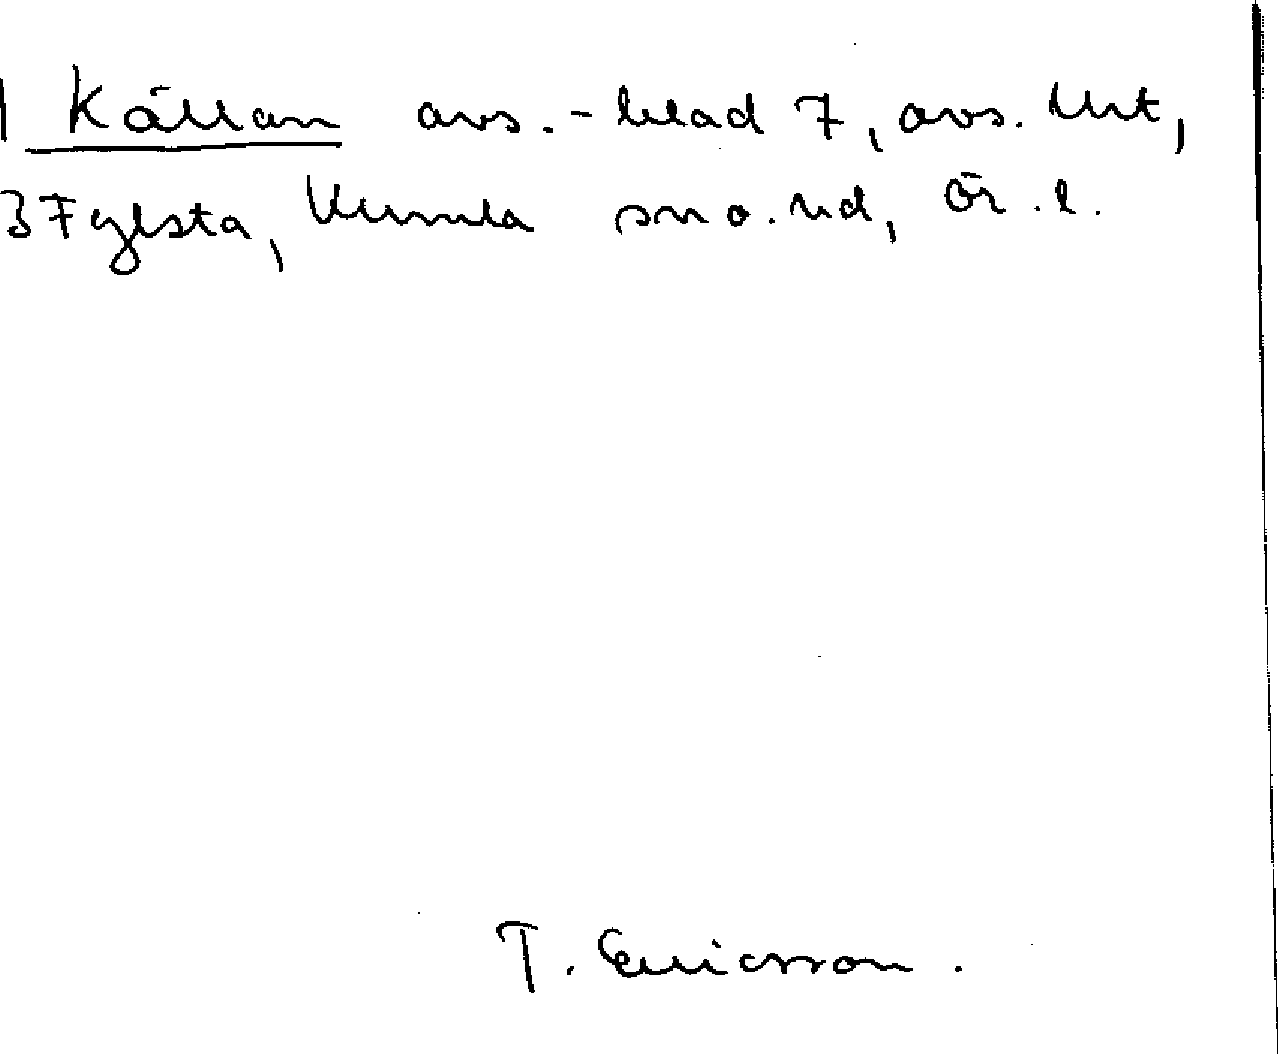 1 Källan avs.-blad 7, avs. Urt,
3 Fylsta, Kumla sn o. hd, Ör. l.
T. Ericsson.